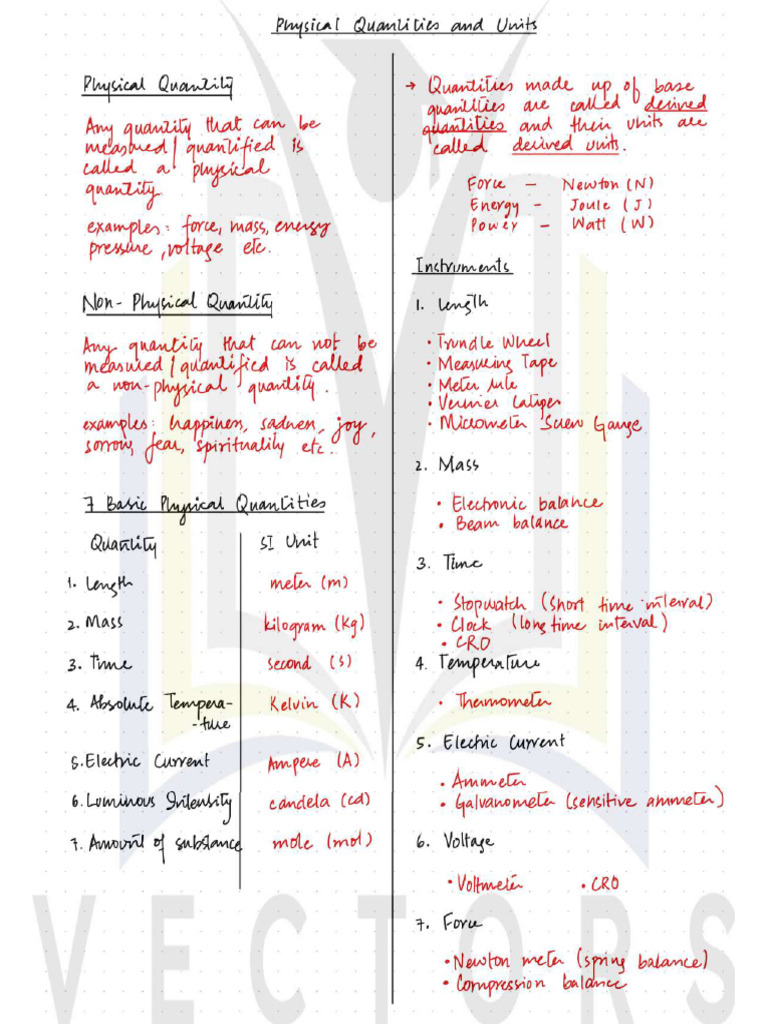 Physical Quantities and Units
Physical Quantity
Any quantity that can be
measured/quantified is
called a physical
quantity
examples: force, mass, energy
pressure, voltage etc.
Non-Physical Quantity
Any quantity that can not be
measured/quantified is called
a non-physical quantity.
examples: happiness, sadness, joy,
sorrow, fear, spirituality etc.
7 Basic Physical Quantities
Quantity SI Unit
1. Length meter (m)
2. Mass kilogram (Kg)
3. Time second (s)
4. Absolute Tempera- Kelvin (K)
-ture
5. Electric Current Ampere (A)
6. Luminous Intensity candela (cd)
7. Amount of substance mole (mol)
→ Quantities made up of base
quantities are called derived
quantities and their units are
called derived units.
Force – Newton (N)
Energy – Joule (J)
Power – Watt (W)
Instruments
1. Length
• Trundle Wheel
• Measuring Tape
• Meter rule
• Vernier Caliper
• Micrometer Screw Gauge
2. Mass
• Electronic balance
• Beam balance
3. Time
• Stopwatch (short time interval)
• Clock (long time interval)
• CRO
4. Temperature
• Thermometer
5. Electric Current
• Ammeter
• Galvanometer (sensitive ammeter)
6. Voltage
• Voltmeter • CRO
7. Force
• Newton meter (spring balance)
• Compression balance
VECTORS